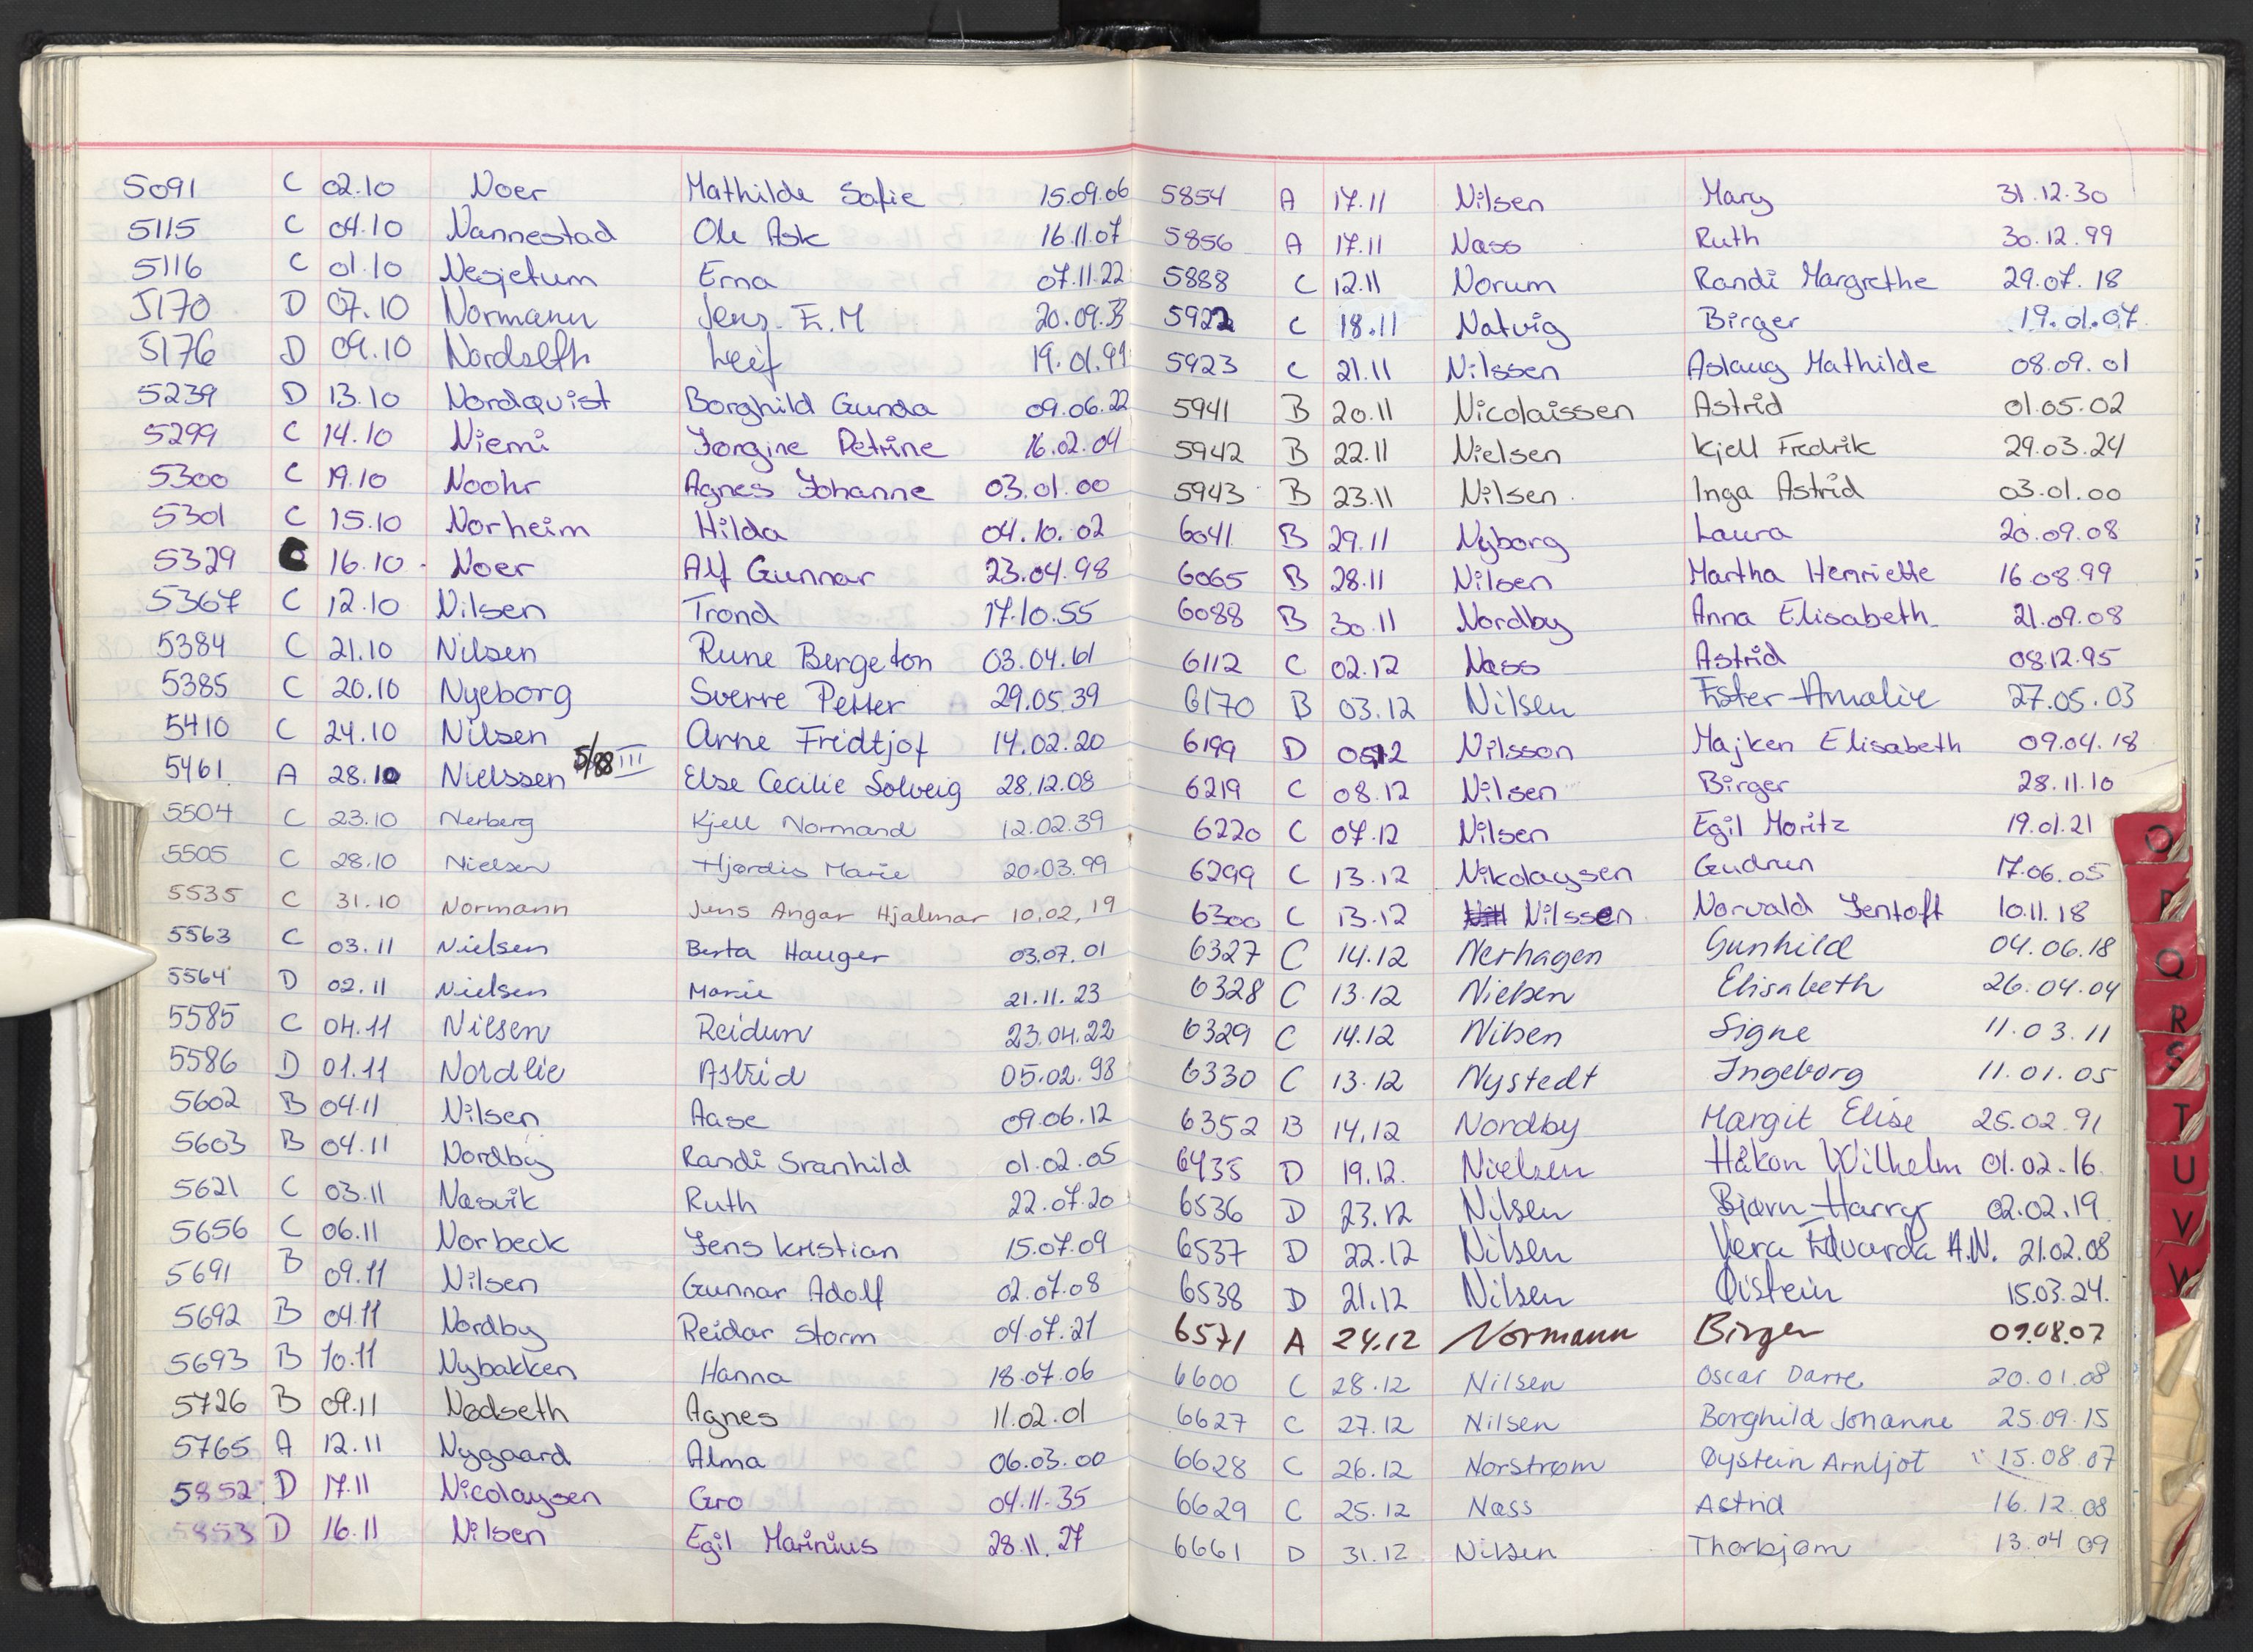 5091 C 02.10 Noer Mathilde Sofie 15.09.06
5115 C 04.10 Nannestad Ole Ask 16.11.07
5116 C 01.10 Nesjetum Erna 07.11.22
5170 D 07.10 Normann Jens E.M 20.09.33
5176 D 09.10 Nordseth Leif 19.01.91
5239 D 13.10 Nordquist Borghild Gunda 09.06.22
5299 C 14.10 Niemi Jørgine Petrine 16.02.04
5300 C 19.10 Noohr Agnes Johanne 03.01.00
5301 C 15.10 Norheim Hilda 04.10.02
5329 C 16.10 Noer Alf Gunnar 23.04.98
5367 C 12.10 Nilsen Trond 17.10.55
5384 C 21.10 Nilsen Rune Bergeton 03.04.61
5385 C 20.10 Nyeborg Sverre Petter 29.05.39
5410 C 24.10 Nilsen Arne Fridtjof 14.02.20
5461 A 28.10 Nielssen 5/88 III Else Cecilie Solveig 28.12.08
5504 C 23.10 Nerberg Kjell Normand 12.02.39
5505 C 28.10 Nielsen Hjørdis Marie 20.03.99
5535 C 31.10 Normann Jens Angar Hjalmar 10.02.19
5563 C 03.11 Nielsen Berta Hauger 03.07.01
5564 D 02.11 Nielsen Marie 21.11.23
5585 C 04.11 Nilsen Reidun 23.04.22
5586 D 01.11 Nordlie Astrid 05.02.98
5602 B 04.11 Nilsen Aase 09.06.12
5603 B 04.11 Nordby Randi Svanhild 01.02.05
5621 C 03.11 Næsvik Ruth 22.07.20
5656 C 06.11 Norbeck Jens Kristian 15.07.09
5691 B 09.11 Nilsen Gunnar Adolf 02.07.08
5692 B 04.11 Nordby Reidar Storm 04.07.21
5693 B 10.11 Nybakken Hanna 18.07.06
5726 B 09.11 Nødseth Agnes 11.02.01
5765 A 12.11 Nygaard Alma 06.03.00
5852 D 17.11 Nicolaysen Gro 04.11.35
5853 D 16.11 Nilsen Egil Marinius 28.11.27
5854 A 17.11 Nilsen Mary 31.12.30
5856 A 17.11 Næss Ruth 30.12.99
5888 C 12.11 Norum Randi Margrethe 29.07.18
5922 C 18.11 Natvig Birger 19.01.07
5923 C 21.11 Nilssen Aslaug Mathilde 08.09.01
5941 B 20.11 Nicolaissen Astrid 01.05.02
5942 B 22.11 Nielsen Kjell Fredrik 29.03.24
5943 B 23.11 Nilsen Inga Astrid 03.01.00
6041 B 29.11 Nyborg Laura 20.09.08
6065 B 28.11 Nilsen Martha Henriette 16.08.99
6088 B 30.11 Nordby Anna Elisabeth 21.09.08
6112 C 02.12 Næss Astrid 08.12.95
6170 B 03.12 Nilsen Ester-Amalie 27.05.03
6199 D 05.12 Nilsson Majken Elisabeth 09.04.18
6219 C 08.12 Nilsen Birger 28.11.10
6220 C 07.12 Nilsen Egil Moritz 19.01.21
6299 C 13.12 Nikolaysen Gudrun 17.06.05
6300 C 13.12 Nilssen Norvald Jentoft 10.11.18
6327 C 14.12 Nerhagen Gunhild 04.06.18
6328 C 13.12 Nielsen Elisabeth 26.04.04
6329 C 14.12 Nilsen Signe 11.03.11
6330 C 13.12 Nystedt Ingeborg 11.01.05
6352 B 14.12 Nordby Margit Elise 25.02.91
6435 D 19.12. Nielsen Håkon Wilhelm 01.02.16.
6536 D 23.12 Nilsen Bjørn-Harry 02.02.19
6537 D 22.12 Nilsen Vera Edvarda A.N. 21.02.08
6538 D 21.12 Nilsen Øistein 15.03.24.
6571 A 24.12 Normann Birger 09.08.07
6600 C 28.12 Nilsen Oscar Darre 20.01.08
6627 C 27.12 Nilsen Borghild Johanne 25.09.15
6628 C 26.12 Norstrøm Øystein Arnljot 15.08.07
6629 C 25.12 Næss Astrid 16.12.08
6661 D 31.12 Nilsen Thorbjørn 13.04 09
O
P
Q
R
S
T
U
V
W